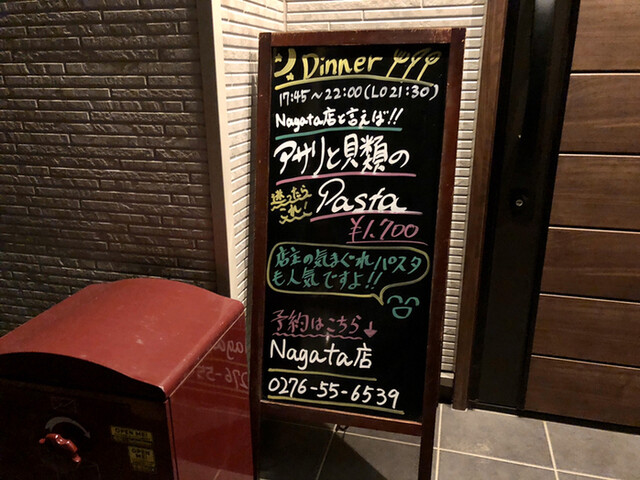 Dinner
17:45～22:00(LO 21:30)
Nagata店と言えば!!
アサリと貝類の
迷ったら
これ!
Pasta
¥1.700
店主の気まぐれパスタ
も人気ですよ!!
予約はこちら↓
Nagata店
0276-55-6539